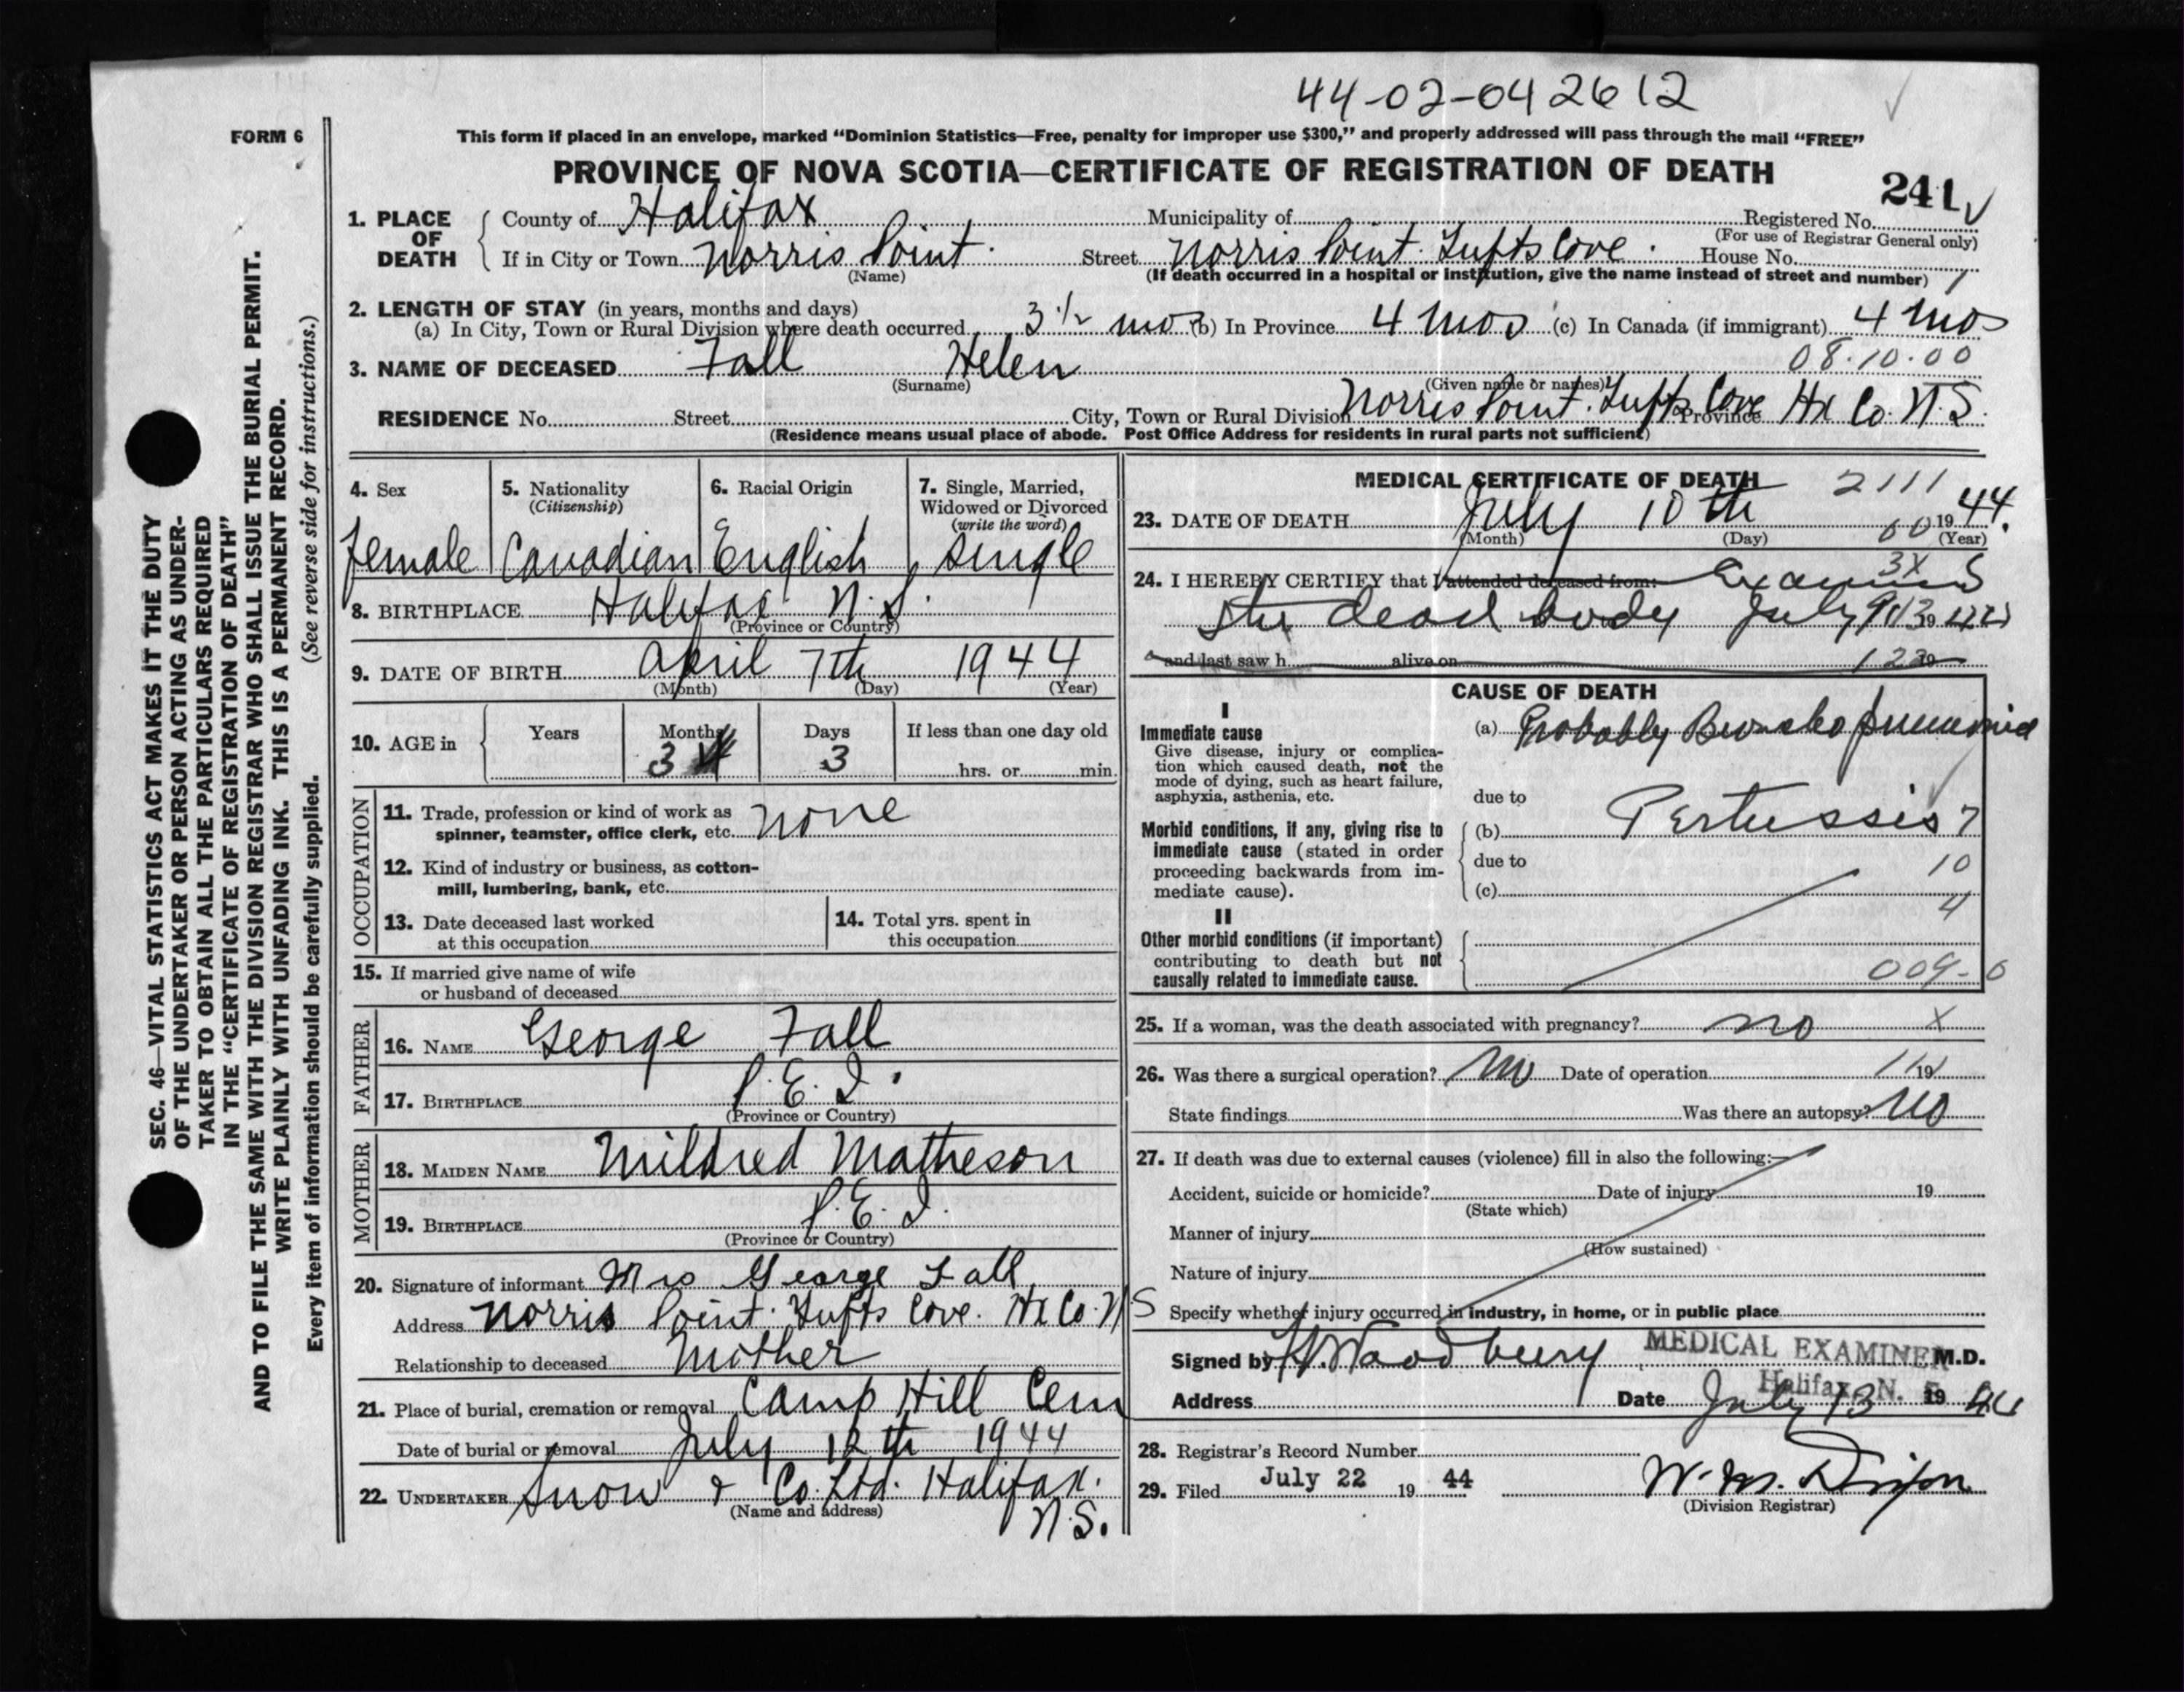 44-02-042612
FORM 6
This form if placed in an envelope, marked “Dominion Statistics—Free, penalty for improper use $300,” and properly addressed will pass through the mail “FREE”
PROVINCE OF NOVA SCOTIA—CERTIFICATE OF REGISTRATION OF DEATH
241
1. PLACE OF DEATH County of Halifax Municipality of Registered No.
(For use of Registrar General only)
If in City or Town Norris Point. Street Norris Point. Tufts Cove. House No.
(Name) (If death occurred in a hospital or institution, give the name instead of street and number) 1
2. LENGTH OF STAY (in years, months and days)
(a) In City, Town or Rural Division where death occurred 3 1/2 mo (b) In Province 4 mos (c) In Canada (if immigrant) 4 mos
08.10.00
3. NAME OF DECEASED Fall Helen
(Surname) (Given name or names)
RESIDENCE No. Street City, Town or Rural Division Norris Point. Tufts Cove Province Hx Co. N.S.
(Residence means usual place of abode. Post Office Address for residents in rural parts not sufficient)
4. Sex 5. Nationality 6. Racial Origin 7. Single, Married,
(Citizenship) Widowed or Divorced
(write the word)
female Canadian English single
8. BIRTHPLACE Halifax N.S.
(Province or Country)
9. DATE OF BIRTH April 7th 1944
(Month) (Day) (Year)
10. AGE in Years Months Days If less than one day old
3 3 hrs. or min.
OCCUPATION
11. Trade, profession or kind of work as
spinner, teamster, office clerk, etc. none
12. Kind of industry or business, as cotton-
mill, lumbering, bank, etc.
13. Date deceased last worked 14. Total yrs. spent in
at this occupation this occupation
15. If married give name of wife
or husband of deceased
FATHER
16. NAME George Fall
17. BIRTHPLACE P.E.I.
(Province or Country)
MOTHER
18. MAIDEN NAME Mildred Matheson
19. BIRTHPLACE P.E.I.
(Province or Country)
20. Signature of informant Mrs George Fall
Address Norris Point. Tufts Cove. Hx Co. N.S
Relationship to deceased Mother
21. Place of burial, cremation or removal Camp Hill Cem
Date of burial or removal July 12th 1944
22. UNDERTAKER Snow & Co. Ltd. Halifax.
(Name and address) N.S.
MEDICAL CERTIFICATE OF DEATH 2111
23. DATE OF DEATH July 10th 00 1944.
(Month) (Day) (Year)
24. I HEREBY CERTIFY that I attended deceased from: 3X
the dead body July 19
and last saw h alive on 123 19
CAUSE OF DEATH
I
Immediate cause (a) Probably Bronchopneumonia
Give disease, injury or complica-
tion which caused death, not the
mode of dying, such as heart failure,
asphyxia, asthenia, etc. due to
Morbid conditions, if any, giving rise to (b) Pertussis 7
immediate cause (stated in order due to 10
proceeding backwards from im-
mediate cause). (c) 4
II
Other morbid conditions (if important)
contributing to death but not
causally related to immediate cause. 009-0
25. If a woman, was the death associated with pregnancy? no X
26. Was there a surgical operation? no Date of operation 19
State findings Was there an autopsy? no
27. If death was due to external causes (violence) fill in also the following:—
Accident, suicide or homicide? Date of injury 19
(State which)
Manner of injury
(How sustained)
Nature of injury
Specify whether injury occurred in industry, in home, or in public place
Signed by Woodbury MEDICAL EXAMINER M.D.
Halifax, N. S.
Address Date July 13 19 44
28. Registrar's Record Number
29. Filed July 22 19 44 W. M. Dixon
(Division Registrar)
SEC. 46—VITAL STATISTICS ACT MAKES IT THE DUTY
OF THE UNDERTAKER OR PERSON ACTING AS UNDER-
TAKER TO OBTAIN ALL THE PARTICULARS REQUIRED
IN THE “CERTIFICATE OF REGISTRATION OF DEATH”
AND TO FILE THE SAME WITH THE DIVISION REGISTRAR WHO SHALL ISSUE THE BURIAL PERMIT.
WRITE PLAINLY WITH UNFADING INK. THIS IS A PERMANENT RECORD.
Every item of information should be carefully supplied. (See reverse side for instructions.)